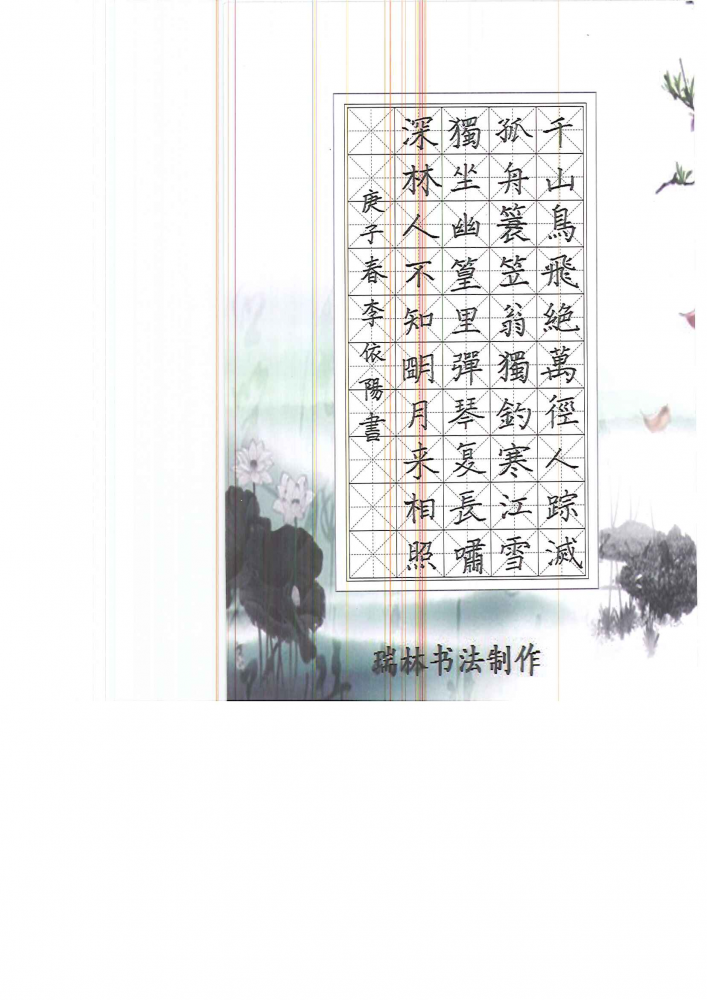 千山鳥飛絶萬徑人踪滅
孤舟簑笠翁獨釣寒江雪
獨坐幽篁里彈琴复長嘯
深林人不知明月来相照
庚子春李依陽書
瑞林书法制作